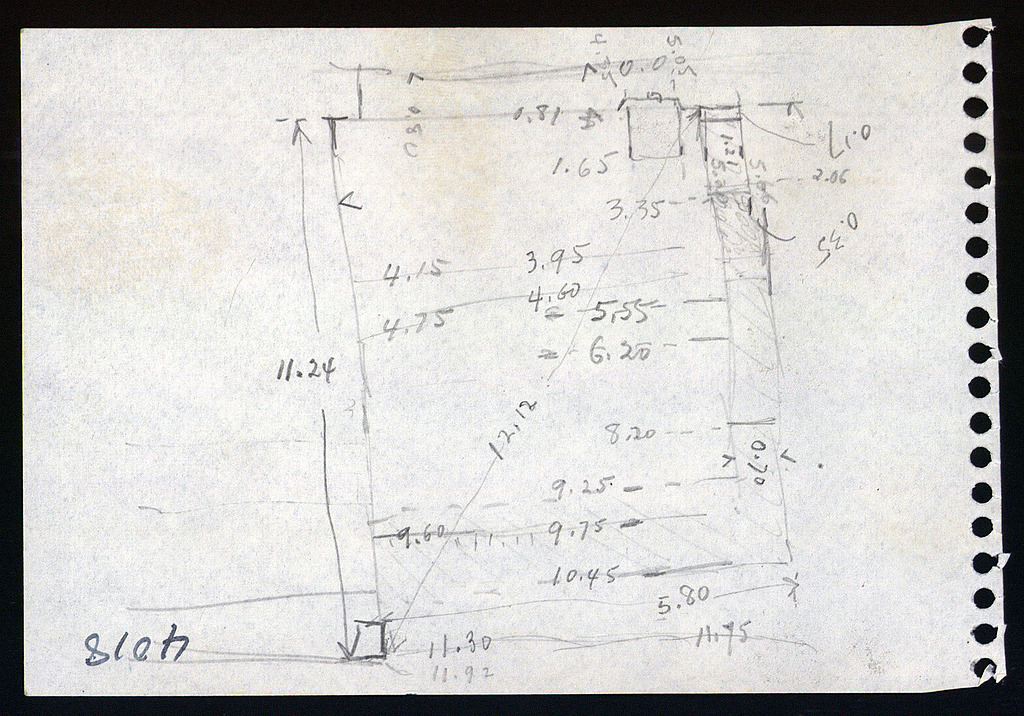 0.0
5.05
0.80
0.81
1.65
1.21
0.17
2.06
3.35
0.35
4.15
3.95
4.60
4.75
5.55
6.20
11.24
12.12
8.20
0.70
9.25
9.60
9.75
10.45
5.80
11.30
11.75
11.92